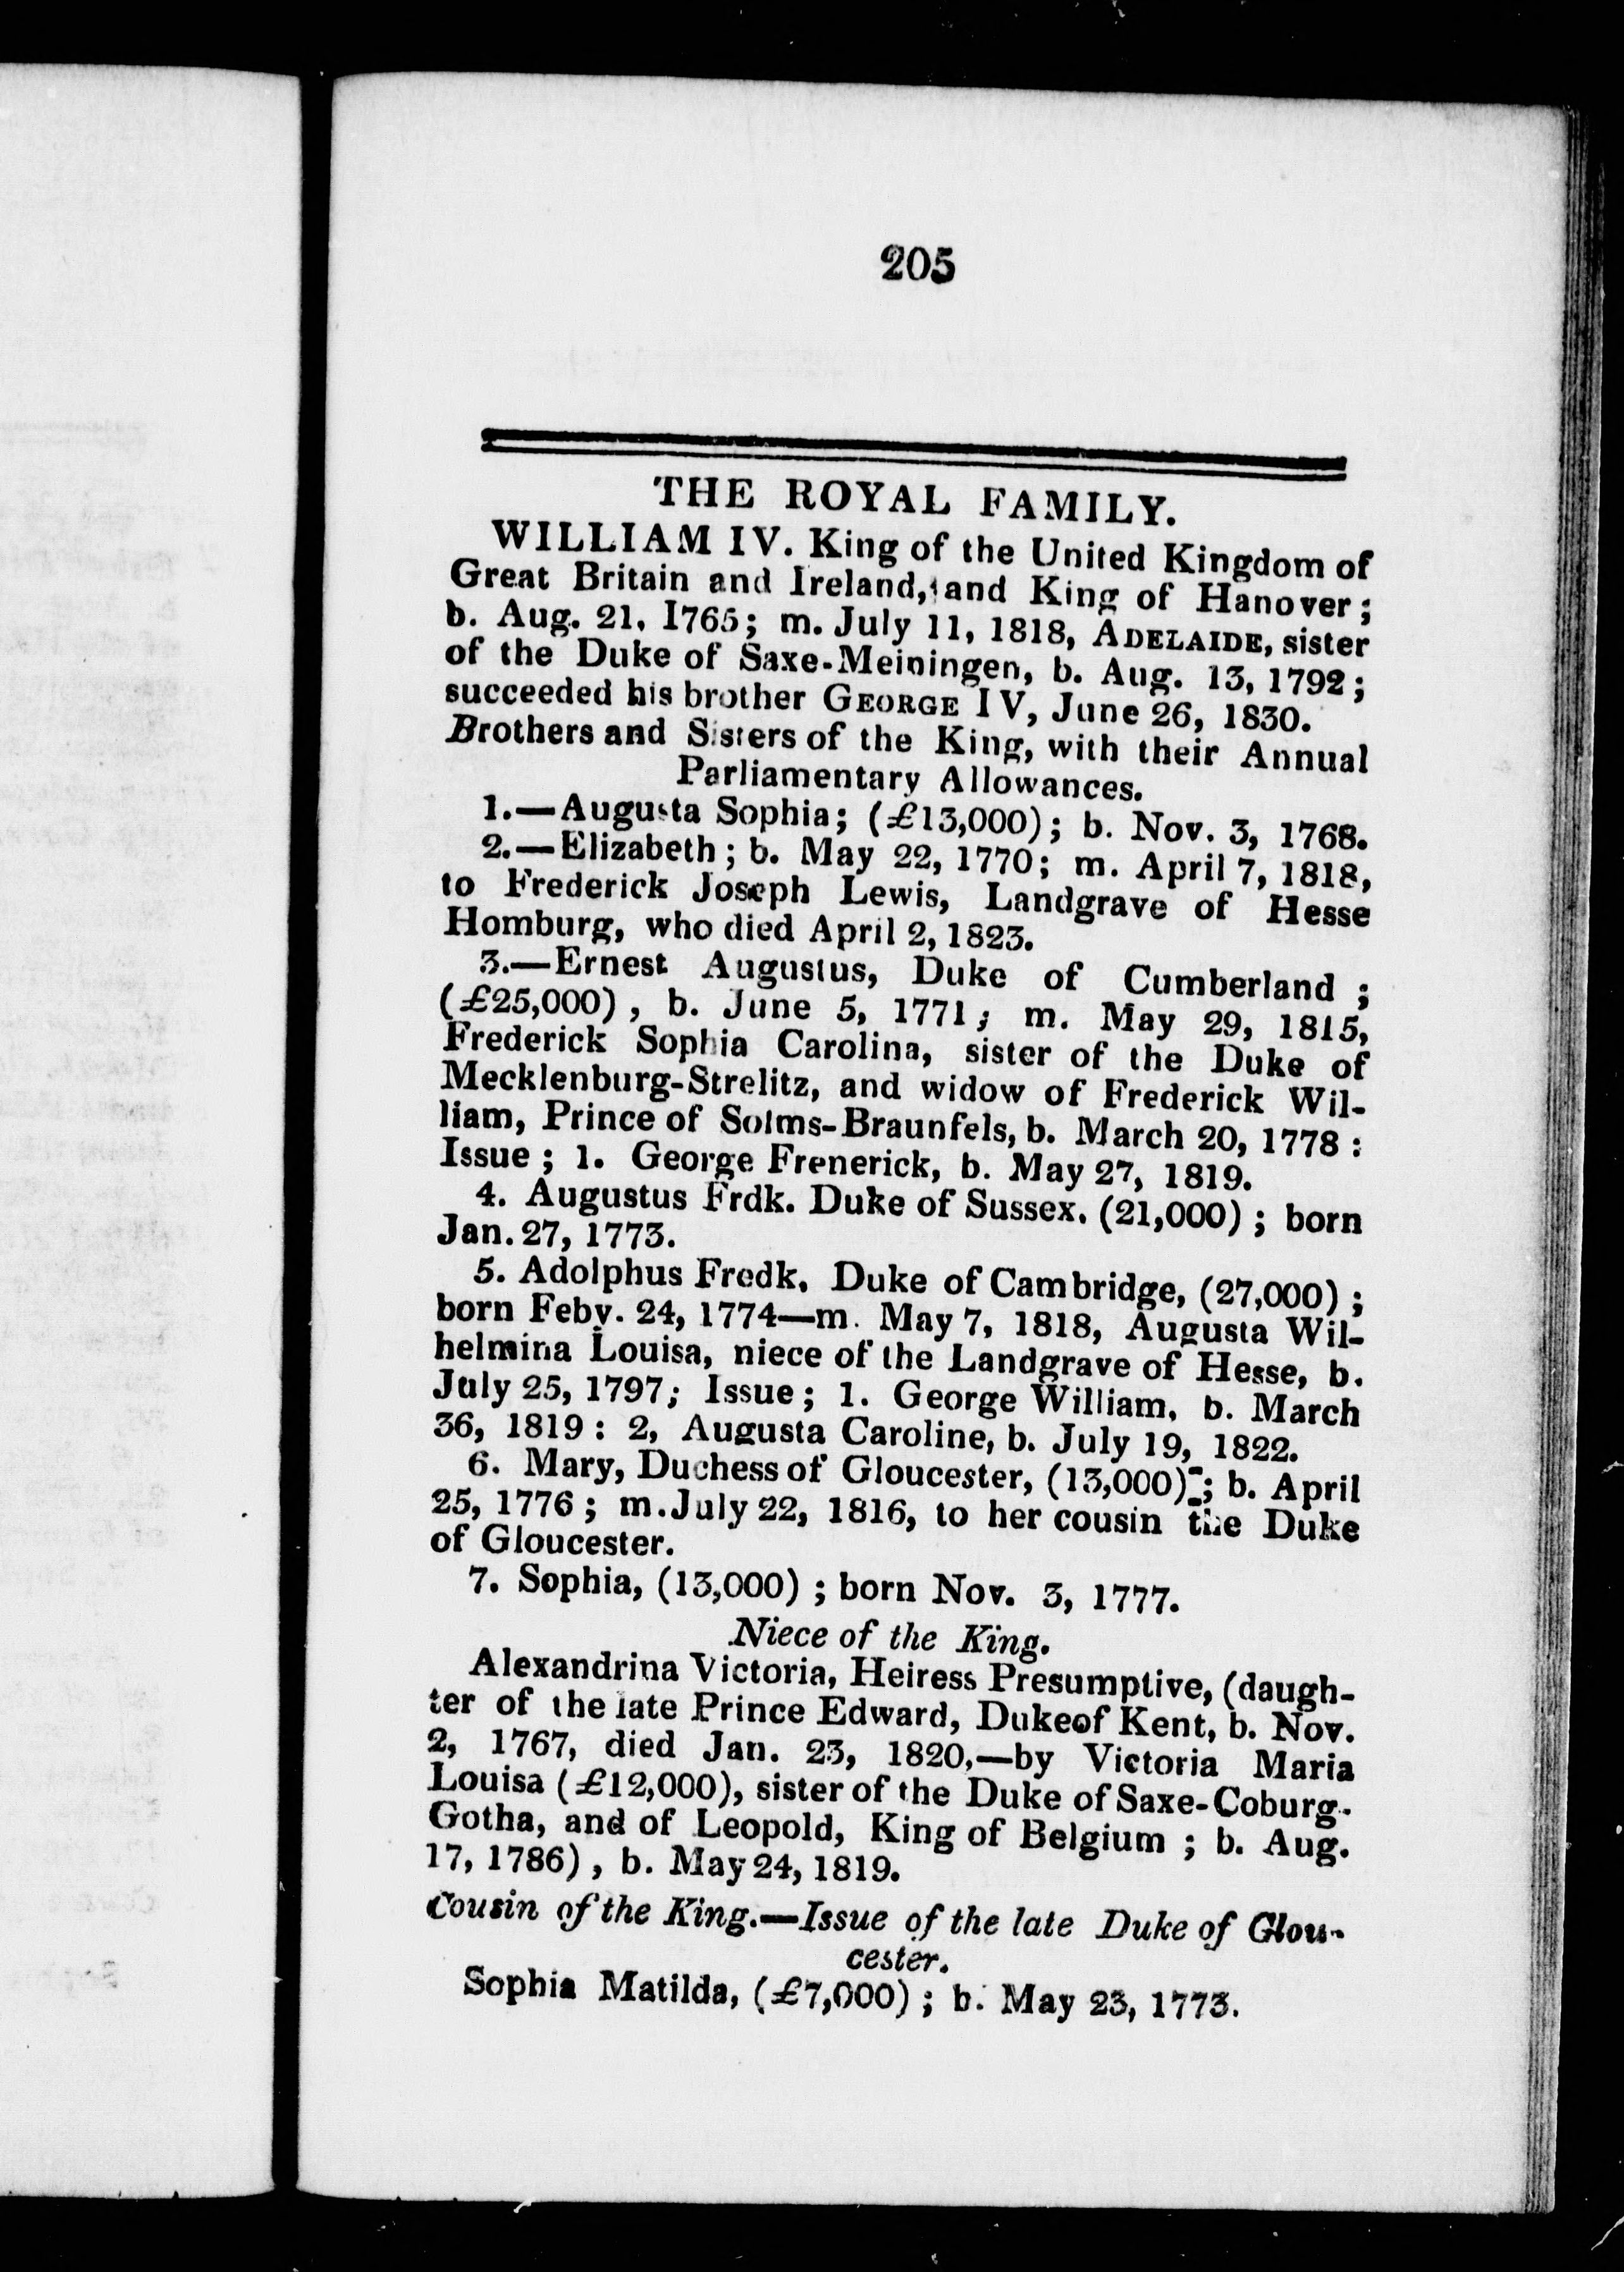 205
THE ROYAL FAMILY.
WILLIAM IV. King of the United Kingdom of
Great Britain and Ireland, and King of Hanover;
b. Aug. 21, 1765; m. July 11, 1818, ADELAIDE, sister
of the Duke of Saxe-Meiningen, b. Aug. 13, 1792;
succeeded his brother GEORGE IV, June 26, 1830.
Brothers and Sisters of the King, with their Annual
Parliamentary Allowances.
1.—Augusta Sophia; (£13,000); b. Nov. 3, 1768.
2.—Elizabeth; b. May 22, 1770; m. April 7, 1818,
to Frederick Joseph Lewis, Landgrave of Hesse
Homburg, who died April 2, 1823.
3.—Ernest Augustus, Duke of Cumberland ;
(£25,000), b. June 5, 1771; m. May 29, 1815,
Frederick Sophia Carolina, sister of the Duke of
Mecklenburg-Strelitz, and widow of Frederick Wil-
liam, Prince of Solms-Braunfels, b. March 20, 1778 :
Issue ; 1. George Frenerick, b. May 27, 1819.
4. Augustus Frdk. Duke of Sussex. (21,000) ; born
Jan. 27, 1773.
5. Adolphus Fredk. Duke of Cambridge, (27,000) ;
born Feby. 24, 1774—m. May 7, 1818, Augusta Wil-
helmina Louisa, niece of the Landgrave of Hesse, b.
July 25, 1797; Issue; 1. George William, b. March
36, 1819 : 2, Augusta Caroline, b. July 19, 1822.
6. Mary, Duchess of Gloucester, (13,000) ; b. April
25, 1776 ; m. July 22, 1816, to her cousin the Duke
of Gloucester.
7. Sophia, (13,000) ; born Nov. 3, 1777.
Niece of the King.
Alexandrina Victoria, Heiress Presumptive, (daugh-
ter of the late Prince Edward, Dukeof Kent, b. Nov.
2, 1767, died Jan. 23, 1820,—by Victoria Maria
Louisa (£12,000), sister of the Duke of Saxe-Coburg-
Gotha, and of Leopold, King of Belgium ; b. Aug.
17, 1786), b. May 24, 1819.
Cousin of the King.—Issue of the late Duke of Glou-
cester.
Sophia Matilda, (£7,000) ; b. May 23, 1773.